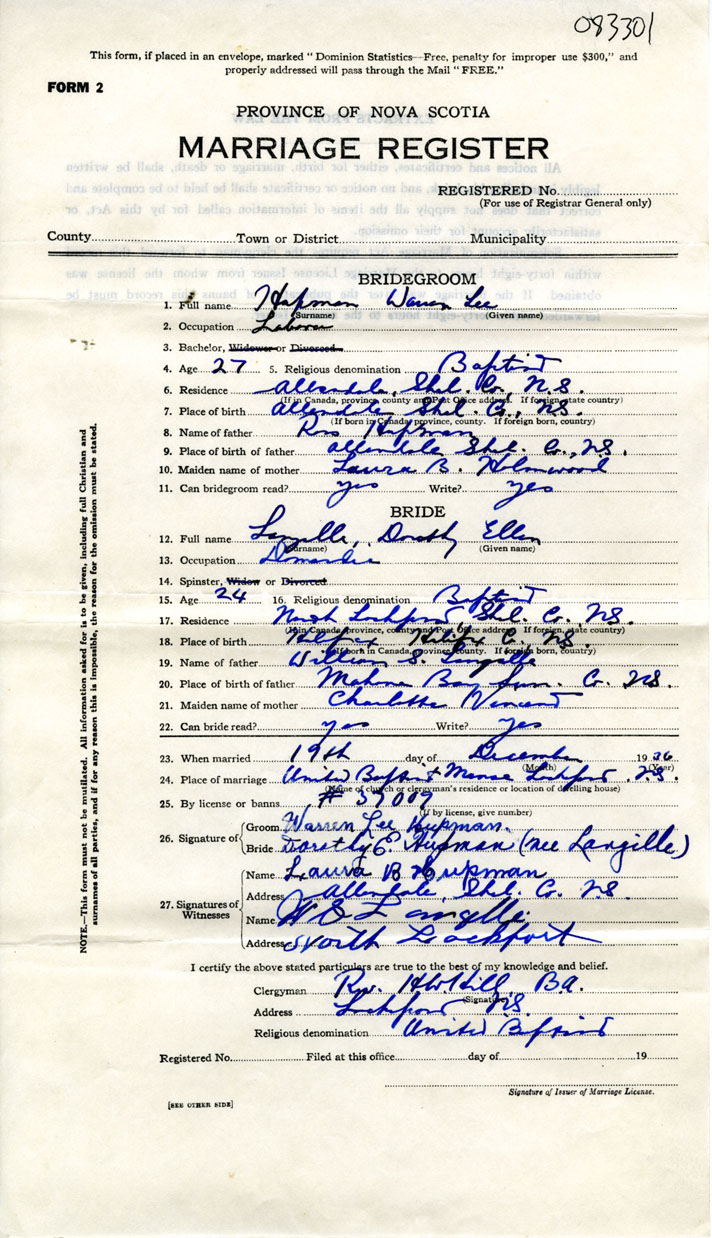 083301
This form, if placed in an envelope, marked "Dominion Statistics—Free, penalty for improper use $300," and
properly addressed will pass through the Mail "FREE."
FORM 2
PROVINCE OF NOVA SCOTIA
MARRIAGE REGISTER
REGISTERED No.
(For use of Registrar General only)
County Town or District Municipality
BRIDEGROOM
1. Full name Hupman Warren Lee
(Surname) (Given name)
2. Occupation Laborer
3. Bachelor, Widower or Divorced
4. Age 27 5. Religious denomination Baptist
6. Residence Allendale, Shel. Co., N.S.
(If in Canada, province, county and Post Office address. If foreign, state country)
7. Place of birth Allendale, Shel. Co., N.S.
(If born in Canada, province, county. If foreign born, country)
8. Name of father Ross Hupman
9. Place of birth of father Allendale Shel. Co., N.S.
10. Maiden name of mother Laura B. Holmwood
11. Can bridegroom read? yes Write? yes
BRIDE
12. Full name Langille, Dorothy Ellen
(Surname) (Given name)
13. Occupation Domestic
14. Spinster, Widow or Divorced
15. Age 24 16. Religious denomination Baptist
17. Residence North Lockport Shel. Co. N.S.
(If in Canada, province, county and Post Office address. If foreign, state country)
18. Place of birth Halifax Halifax C. N.S.
(If born in Canada, province, county. If foreign born, country)
19. Name of father William S. Langille
20. Place of birth of father Mahone Bay Lun. Co. N.S.
21. Maiden name of mother Charlotte Vincent
22. Can bride read? yes Write? yes
23. When married 19th day of December 19
(Month) (Year)
24. Place of marriage United Baptist Manse Lockport N.S.
(Name of church or clergyman's residence or location of dwelling house)
25. By license or banns #
(If by license, give number)
26. Signature of Groom Warren Lee Hupman.
Bride Dorothy E. Hupman (nee Langille)
27. Signatures of Witnesses Name Laura B Hupman
Address Allendale, Shel. Co. N.S.
Name Langille
Address North Lockport
I certify the above stated particulars are true to the best of my knowledge and belief.
Clergyman Rev. H.W. Hill, B.A.
(Signature)
Address Lockport N.S.
Religious denomination United Baptist
Registered No. Filed at this office day of 19
Signature of Issuer of Marriage License.
[SEE OTHER SIDE]
NOTE.—This form must not be mutilated. All information asked for is to be given, including full Christian and
surnames of all parties, and if for any reason this is impossible, the reason for the omission must be stated.